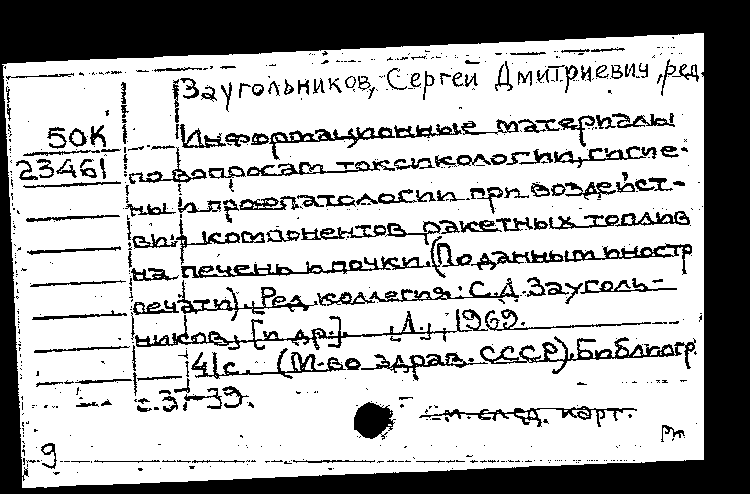 Заугольников, Сергей Дмитриевич, ред.
50К
23461
Информационные материалы
по вопросам токсикологии, гигие-
ны и профпатологии при воздейст-
вии компонентов ракетных топлив
на печень и почки. (По данным иностр
печати). Ред. коллегия: С.Д. Зауголь-
ников, [и др.]. [Л.], 1969.
41с. (М-во здрав. СССР). Библиогр.
с.37-39.
См. след. карт.
9